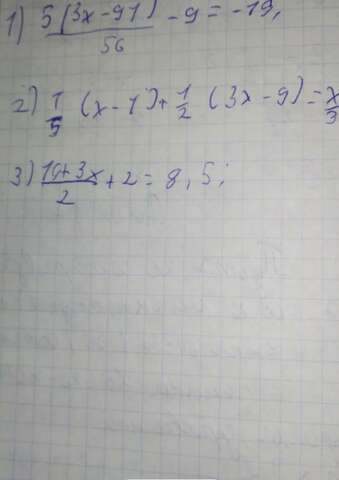 1) 5(3x-91)/56 - 9 = -19,
2) 1/5 (x-1)+ 1/2 (3x-9)= x/3
3) 10+3x/2 + 2 = 8,5;